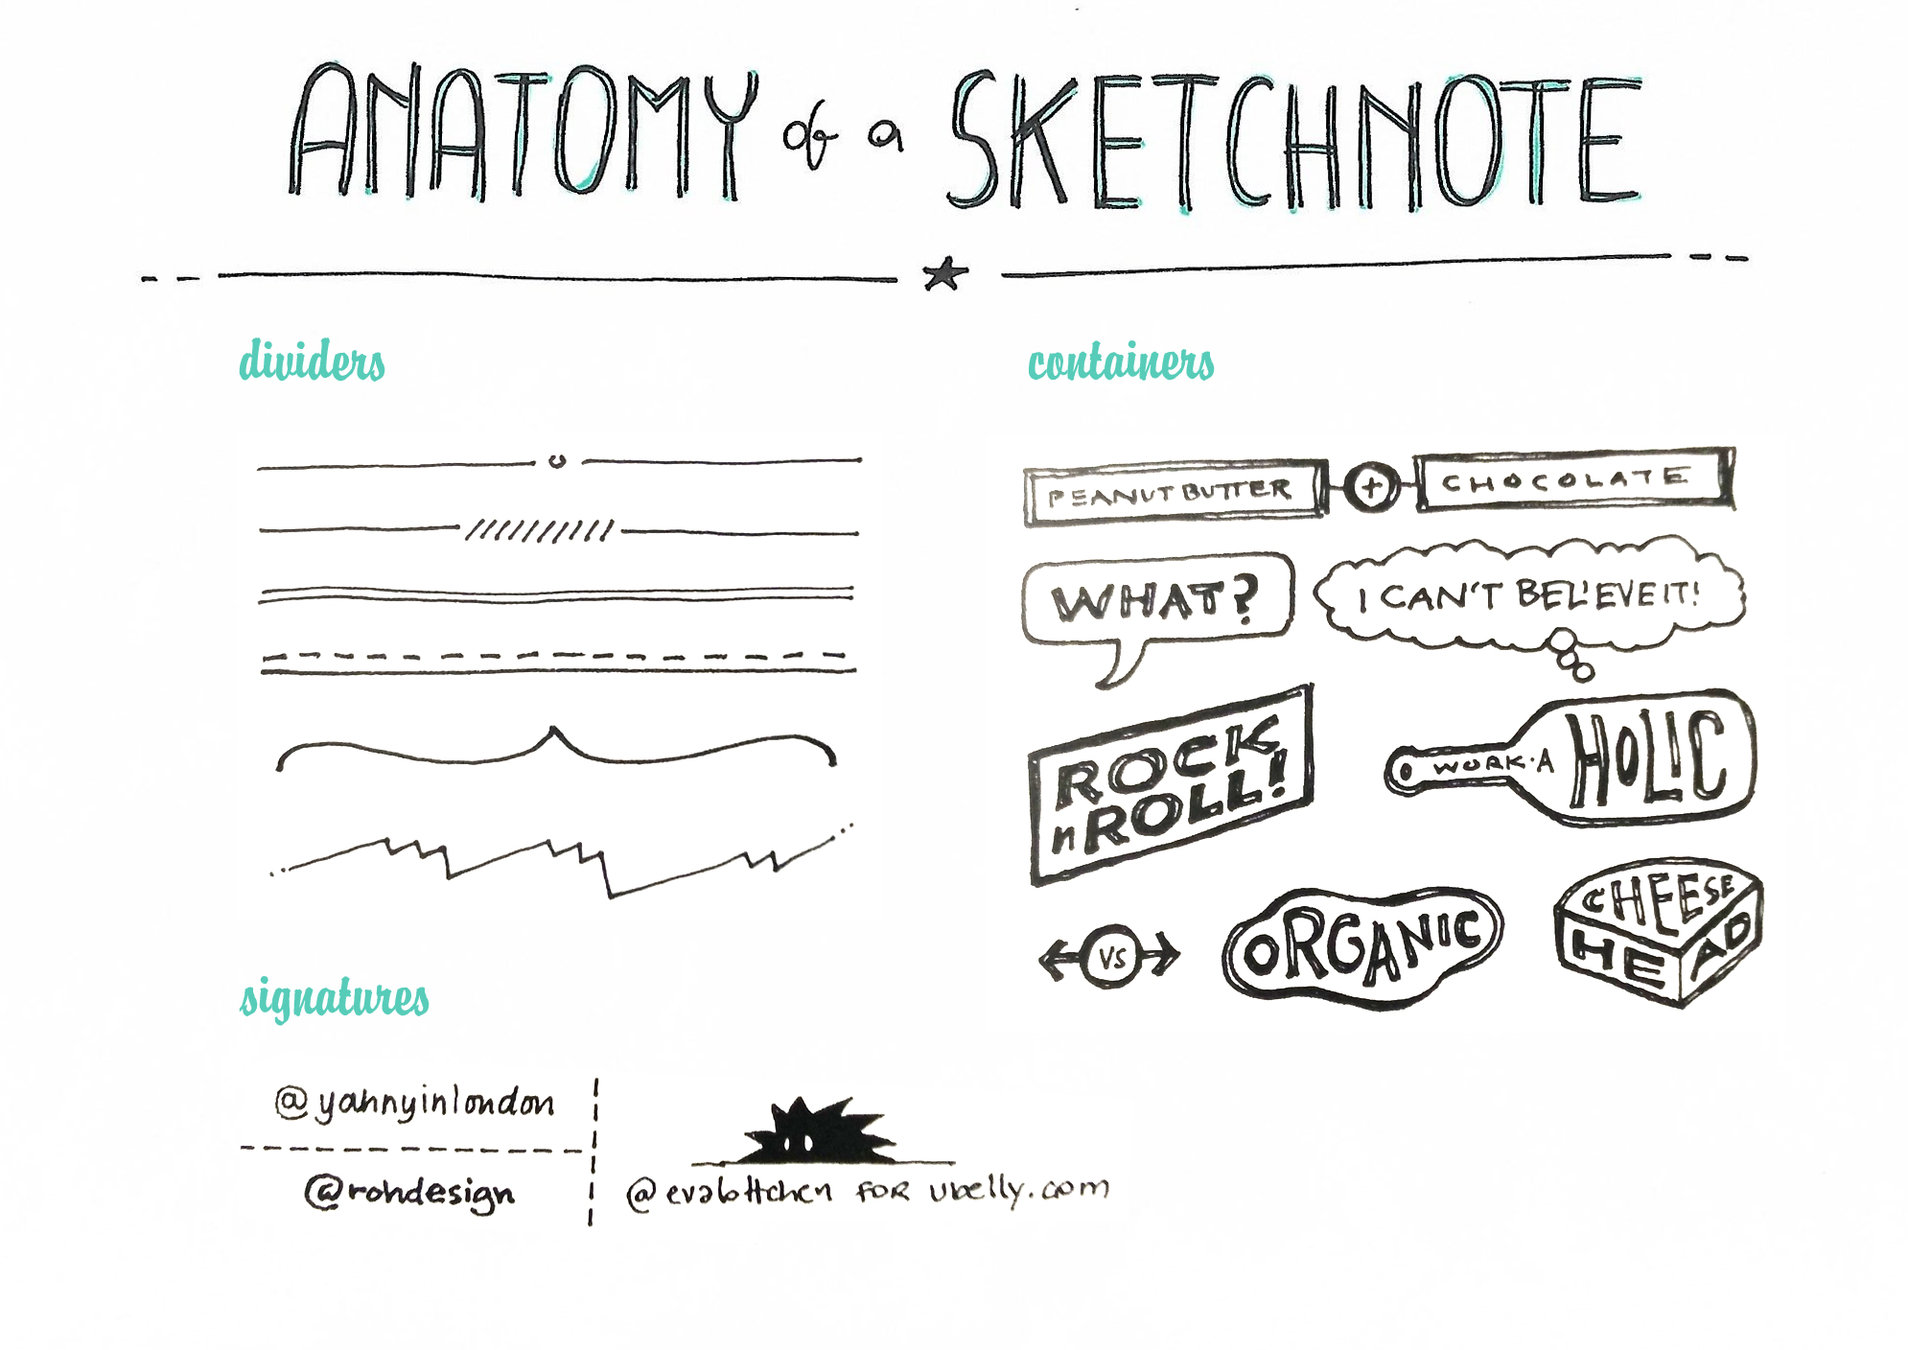 ANATOMY of a SKETCHNOTE
dividers
containers
PEANUT BUTTER + CHOCOLATE
WHAT?
I CAN'T BELIEVE IT!
ROCK
n ROLL!
WORK·A HOLIC
VS
ORGANIC
CHEESE
HEAD
signatures
@yahnyinlondon
@rohdesign
@evalottchen FOR ubelly.com